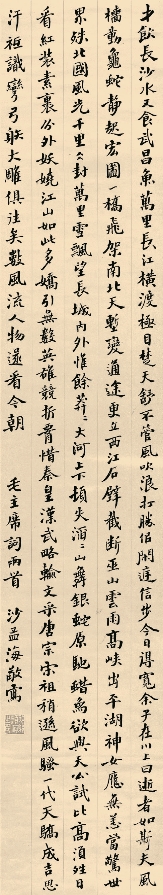 才飲長沙水又食武昌魚萬里長江橫渡極目楚天舒不管風吹浪打勝似閑庭信步今日得寬余子在川上曰逝者如斯夫風
檣動龜蛇靜起宏圖一橋飛架南北天塹變通途更立西江石壁截斷巫山雲雨高峽出平湖神女應無恙當驚世
界殊北國風光千里冰封萬里雪飄望長城內外惟餘莽〻大河上下頓失滔〻山舞銀蛇原馳蠟象欲與天公試比高須晴日
看紅裝素裹份外妖嬈江山如此多嬌引無數英雄競折腰惜秦皇漢武略輸文采唐宗宋祖稍遜風騷一代天驕成吉思
汗祇識彎弓射大雕俱往矣數風流人物還看今朝 毛主席詞兩首 沙孟海敬寫